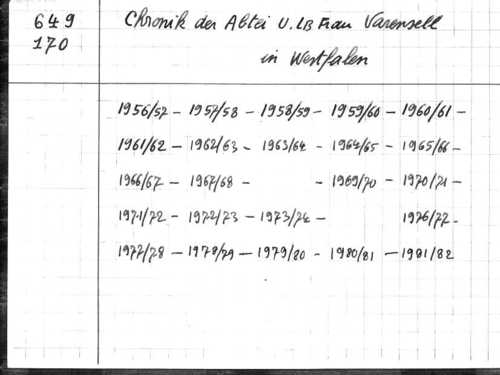 649
170
Chronik der Abtei U. Lb Frau Varensell
in Westfalen
1956/57 - 1957/58 - 1958/59 - 1959/60 - 1960/61 -
1961/62 - 1962/63 - 1963/64 - 1964/65 - 1965/66 -
1966/67 - 1967/68 - - 1969/70 - 1970/71 -
1971/72 - 1972/73 - 1973/74 - 1976/77 -
1977/78 - 1978/79 - 1979/80 - 1980/81 - 1981/82